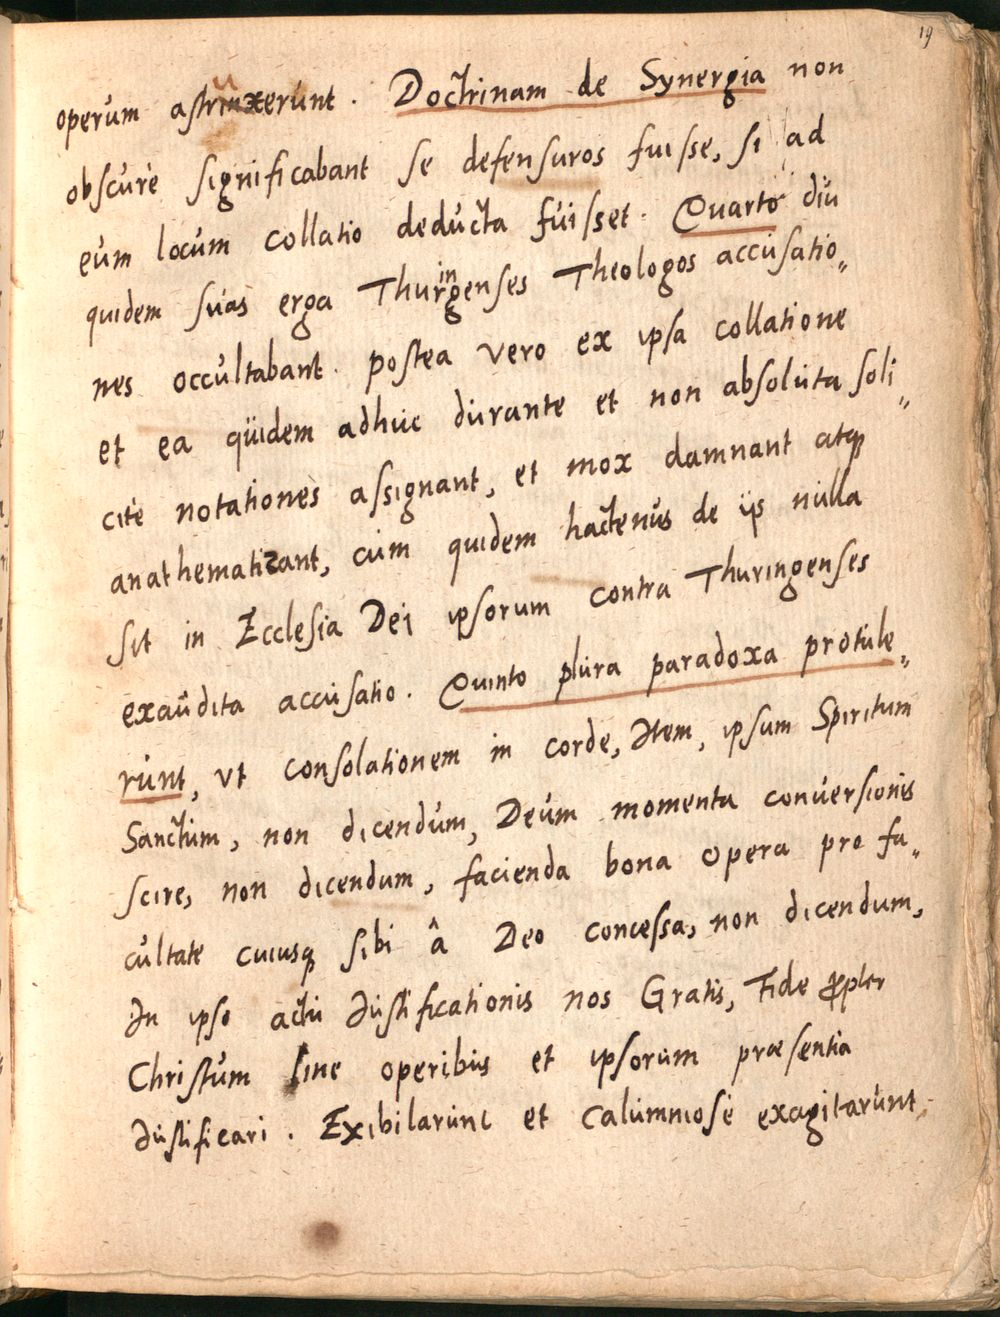 19
operum astruxerunt. Doctrinam de Synergia non
obscurè significabant se defensuros fuisse, si ad
eum locum collatio deducta fuisset. Quarto diu
quidem suas erga Thuringenses Theologos accusatio„
nes occultabant. postea vero ex ipsa collatione
et ea quidem adhuc durante et non absoluta soli„
citè notationes assignant, et mox damnant atq́
anathematizant, cùm quidem hactenus de ijs nulla
sit in Ecclesia Dei ipsorum contra Thuringenses
exaudita accusatio. Quinto plura paradoxa protule„
runt, vt consolationem in corde, Item, ipsum Spiritum
Sanctum, non dicendum, Deum momenta conuersionis
scire, non dicendum, facienda bona opera pro fa„
cultate cuiusq́ sibi â Deo concessa, non dicendum,
In ipso actu Iustificationis nos Gratis, Fide ꝓpter
Christum sine operibus et ipsorum præsentia
Iustificari. Exibilarunt et calumniosè exagitarunt,